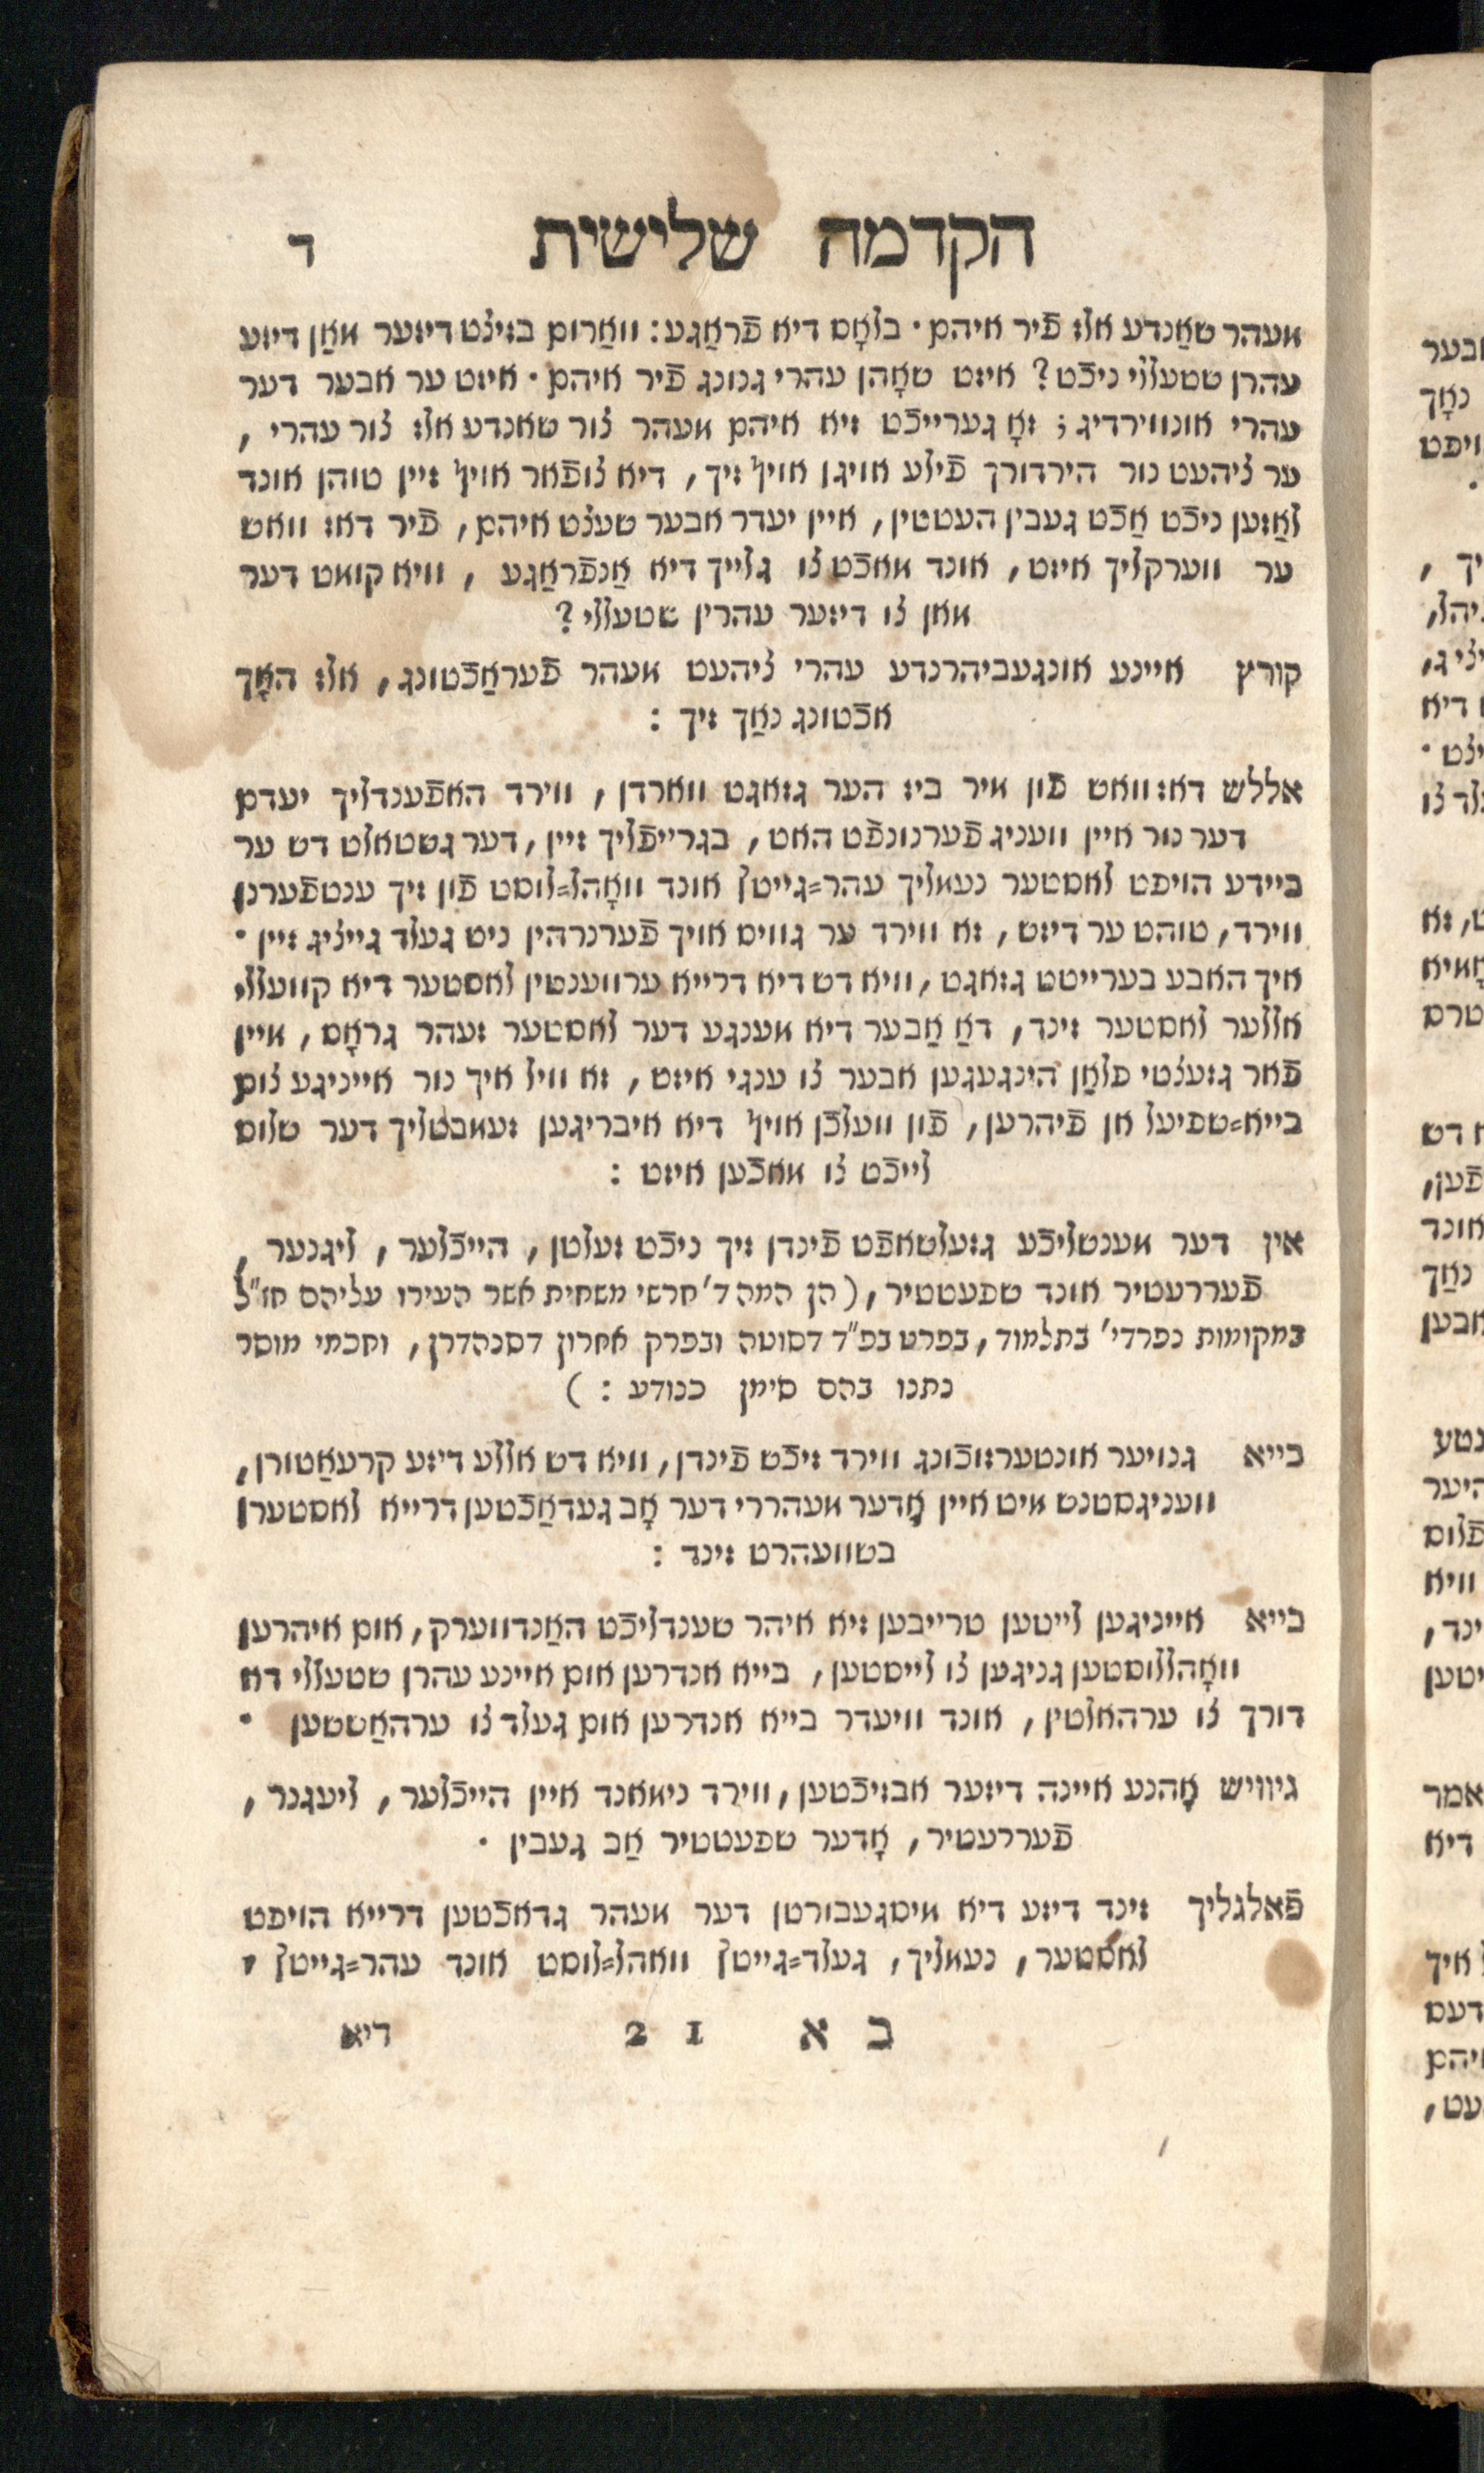 הקדמה שלישית ד
מעהר שאַנדע אלז פֿיר איהם · בלאָס דיא פֿראַגע : וואַרום בזיצט דיזער מאַן דיזע
עהרן שטעללי ניכֿט ? איזט שאָהן עהרי גנונג פֿיר איהם · איזט ער אבער דער
עהרי אונווירדיג ; זאָ גערייכֿט זיא איהם מעהר צור שאנדע אלז צור עהרי ,
ער ציהעט נור הירדורך פֿילע אויגן אויף זיך , דיא צופֿאר אויף זיין טוהן אונד
לאַזען ניכֿט אַכֿט געבין העטטין , איין יעדר אבער שעצט איהם , פֿיר דאז וואש
ער ווערקליך איזט , אונד מאכֿט צו גלייך דיא אַנפֿראַגע , וויא קומט דער
מאן צו דיזער עהרין שטעללי ?
קורץ איינע אונגעביהרנדע עהרי ציהעט מעהר פֿעראַכֿטונג , אלז האָך
אכֿטונג נאַך זיך :
אללש דאז וואש פֿון מיר ביז הער גזאגט ווארדן , ווירד האפֿענדליך יעדם
דער נור איין וועניג פֿערנונפֿט האט , בגרייפֿליך זיין , דער גשטאלט דש ער
ביידע הויפט לאסטער נעמליך עהר=גייטץ אונד וואָהל=לוסט פֿון זיך ענטפֿערנן
ווירד , טוהט ער דיזש , זא ווירד ער גוויס אויך פֿערנרהין ניט געלד גייציג זיין ·
איך האבע בערייטט גזאגט , וויא דש דיא דרייא ערווענטין לאסטער דיא קוועללי
אללער לאסטער זינד , דאַ אַבער דיא מענגע דער לאסטער זעהר גראָס , מיין
פֿאר גזעצטי פלאַן הינגעגען אבער צו ענגי איזט , זא וויל איך נור אייניגע צום
בייא=שפיעל אן פֿיהרען , פֿון וועלכֿן אויף דיא איבריגען זעמבטליך דער שלוס
לייכֿט צו מאכֿען איזט :
אין דער מענשליכֿע גזעלשאפֿט פֿינדן זיך ניכֿט זעלטן , הייכֿלער , ליגנער ,
פֿעררעטיר אונד שפעטטיר , ( הן המה ד' חרשי משחית אשר העירו עליהם חז"ל
במקומות נפרדי' בתלמוד , בפרט בפ"ד דסוטה ובפרק אחרון דסנהדרן , וחכמי מוסר
נתנו בהם סימן כנודע : )
בייא גנויער אונטערזוכֿונג ווירד זיכֿט פֿינדן , וויא דש אללע דיזע קרעאַטורן ,
ווענינגסטנש מיט איין אָדער מעהררי דער אָב געדאַכֿטען דרייא לאסטערן
בשוועהרט זינד :
בייא אייניגען לייטען טרייבען זיא איהר שענדליכֿש האַנדווערק , אום איהרען
וואָהללוסטען גניגען צו לייסטען , בייא אנדרען אום איינע עהרן שטעללי דא
דורך צו ערהאלטין , אונד וויעדר בייא אנדרען אום געלד צו ערהאַשטען ·
גיוויש אָהנע איינה דיזער אבזיכֿטען , ווירד נימאנד איין הייכֿלער , ליעגנר ,
פֿעררעטיר , אָדער שפעטטיר אַב געבין ·
פֿאלגליך זינד דיזע דיא מיסגעבורטן דער מעהר גדאכֿטען דרייא הויפט
לאסטער , נעמליך , געלד=גייטץ וואהל=לוסט אונד עהר=גייטץ ,
ב א 1 2 דיא